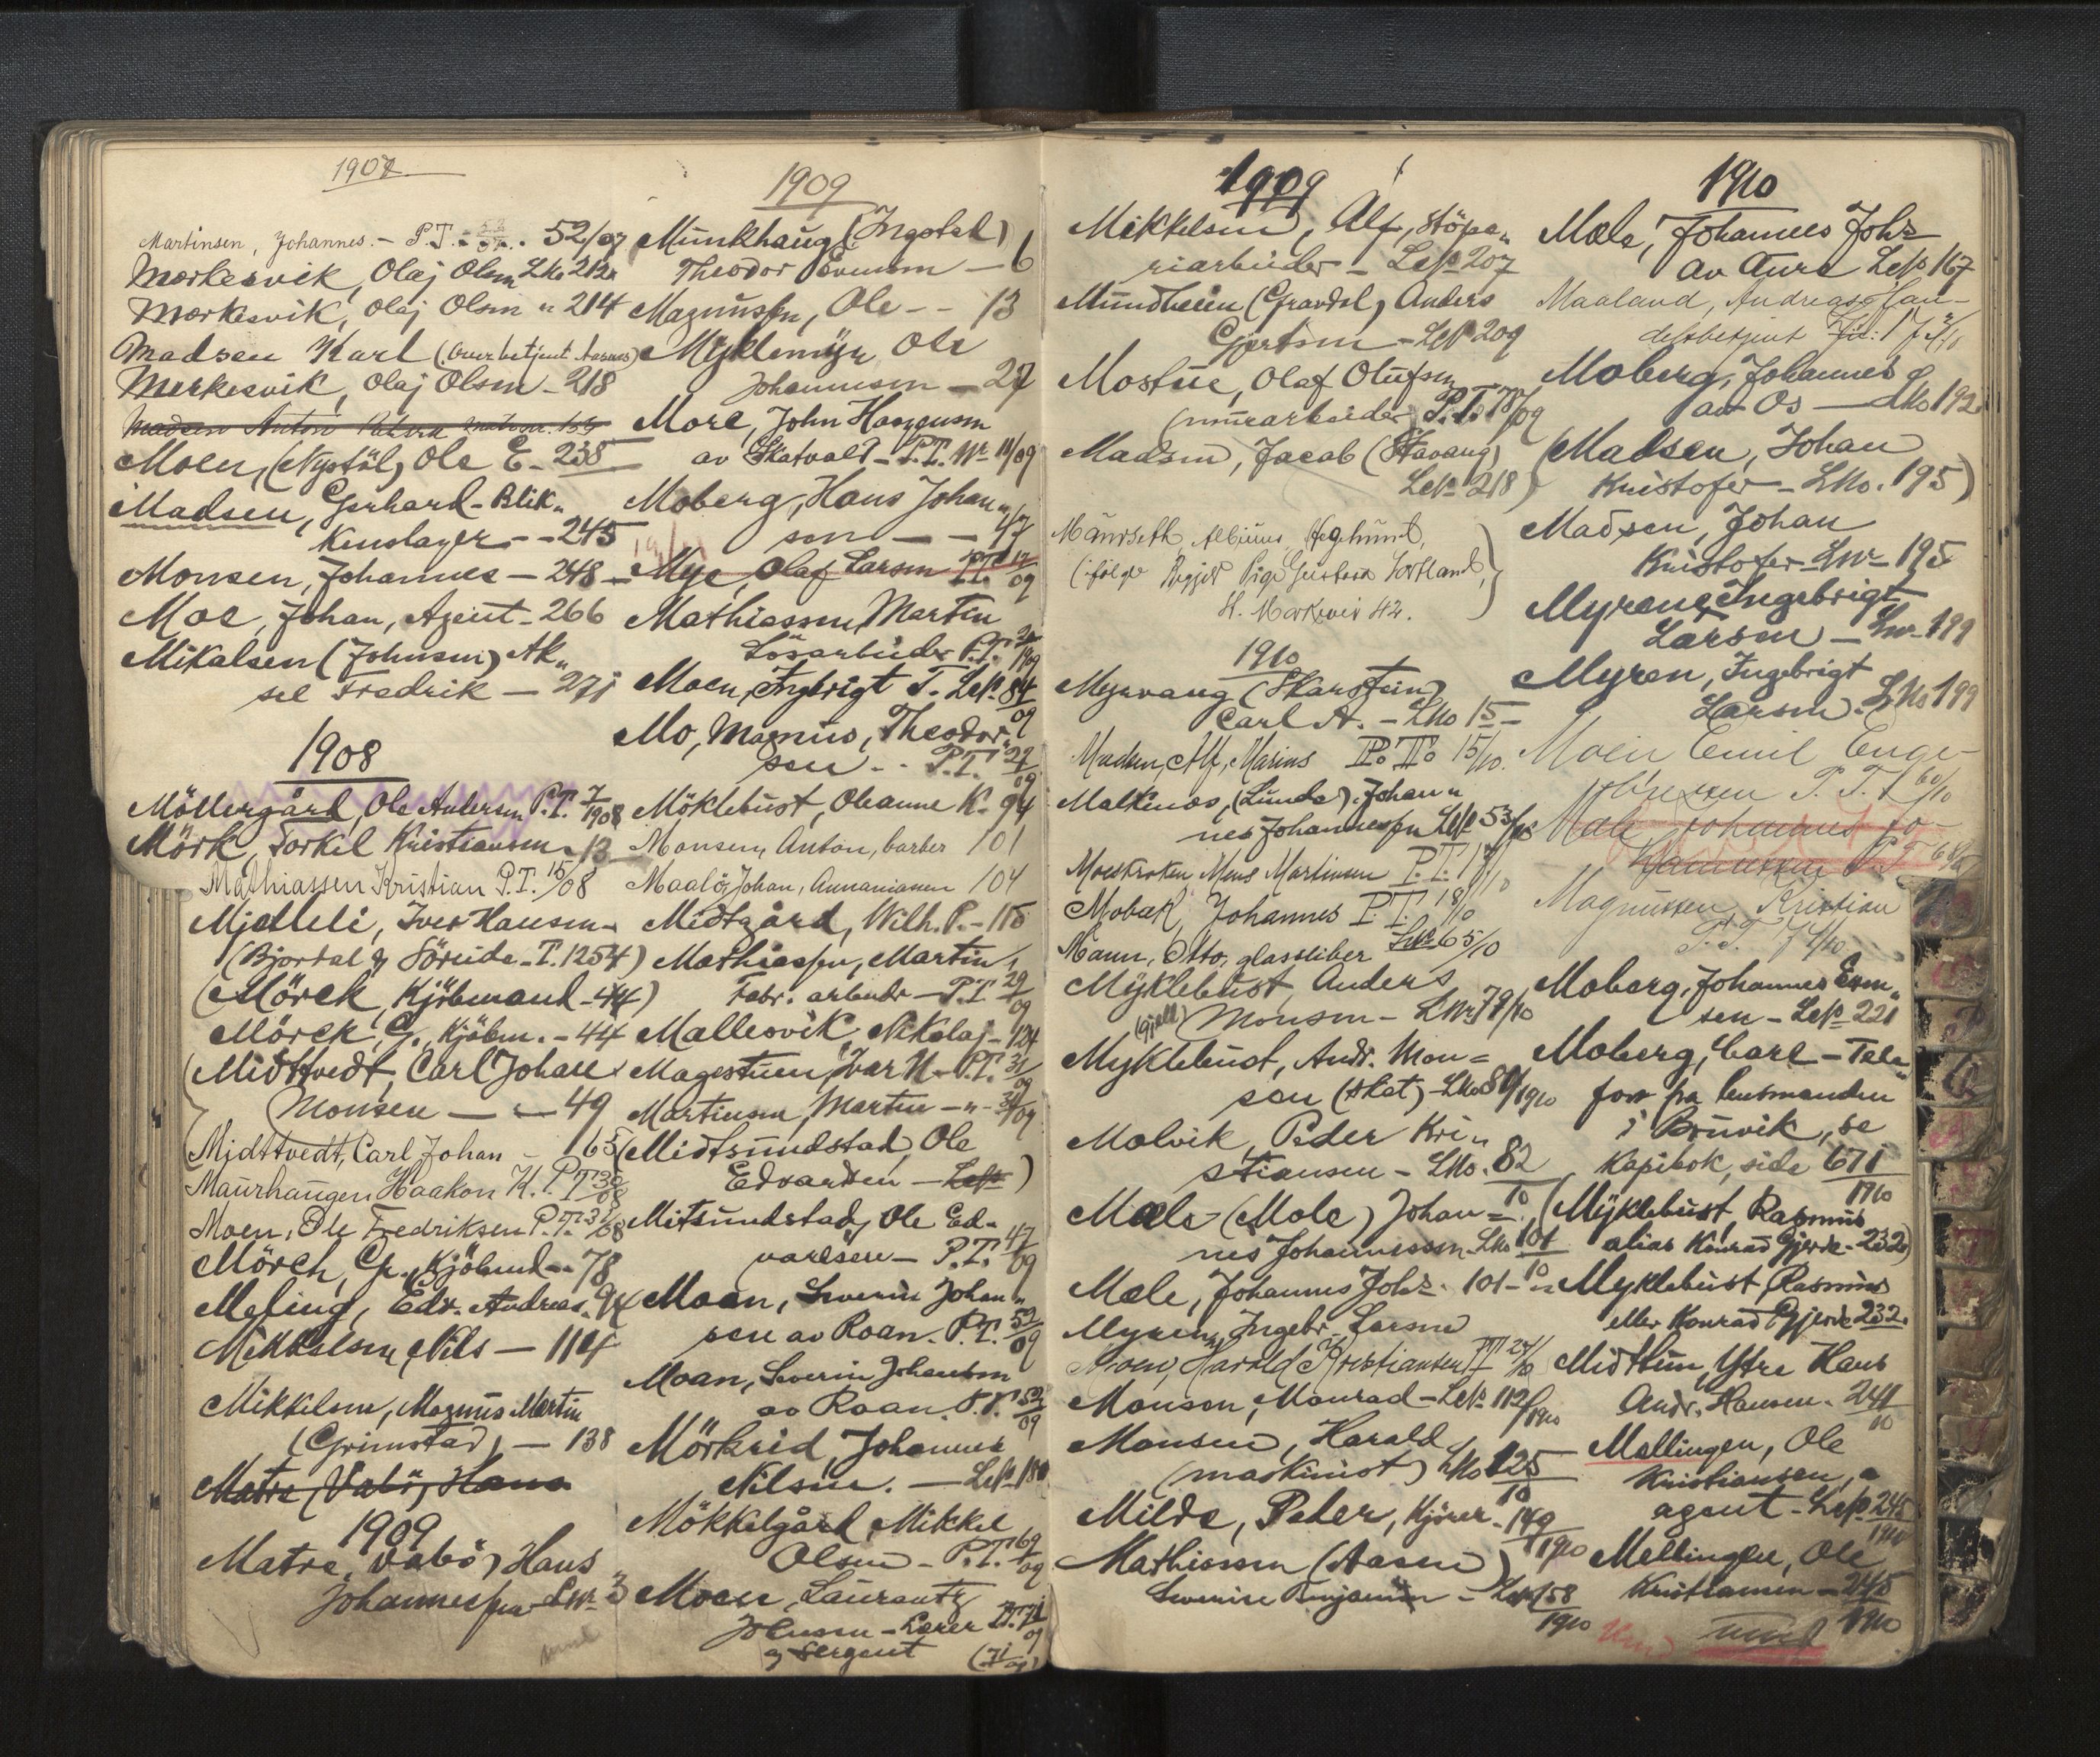 1907
Martinsen, Johannes. - P.T. 52/07
Mørkesvik, Olaj Olsen LNo 212
Mørkesvik, Olaj Olsen " 214
Madsen Karl (Overbetjent
Mørkesvik, Olaj Olsen - 218
Madsen Anton
Moen, (Nystöl) Ole E - 238
Madsen, Gerhard - Blik-
kenslager - - 245
Monsen, Johannes - 248
Moe, Johan, Agent - 266
Mikalsen (Johnsen) Ak-
sel Fredrik - 271
1908
Möllergård, Ole Andersen P.T. 7/1908
Mörk, Torkil Kristiansen - 13
Mathiassen Kristian P.T. 15/08
Mjelleli, Iver Hansen
(Bjortal & Söreide - P. 1254)
(Mörck, Kjöbmand - 44)
Mörck, G., Kjöbm. - 44
(Midttvedt, Carl Johan
Monsen - - 49
Midttvedt, Carl Johan - 65
Maurhaugen Haakon K. P.T. 30/08
Moen, Ole Fredriksen P.T. 3/08
Mörch, Chr., Kjöbmd - 78
Meling, Edv. Andreas. 94
Mikkelsen, Nils - 114
Mikkelsen, Magnus Martin
(Grimstad) - 138
Matre (Valö) Hans
1909
Matre, (Valö) Hans
Johannessen Lnr 3
1909
Munkhaug (Ingstad)
Theodor Evensen - 6
Magnussen, Ole - - 13
Myklemyr Ole
Johannesen - 27
More, John Haagensen
av Skatvald - P.T. Nr 11/09
Moberg, Hans Johan-
sen - - 47
Mye, Olaf Larsen P.T. 12/09
Mathiassen, Martin
Lösarbeider P.T. 20/1909
Moen, Ingbrigt T. LNo 84/09
Mo, Magnus, Theodor-
sen - - P.T. 24/09
Möklebust, Oleanne K. 94
Monsen, Anton, barber 101
Maalö, Johan, Annaniassen 104
Midtgård, Wilh. P. - 115
Mathiassen, Martin,
Fabr. arbeider - P.T. 29/09
Mallesvik, Nikolaj - 124
Magestuen, Ivar N - P.T. 31/09
Martinsen, Martin - " - 34/09
(Midtsundstad, Ole
Edvardsen - LNo )
Mitsundstad, Ole Ed-
vardsen - P.T. 47/09
Moan, Severin Johan-
sen av Roan. P.T. 52/09
Moan, Severin Johansen
av Roan. P.T. 52/09
Mörkrid, Johannes
Nilsen. - LNo 180
Mökkelgård, Mikkel
Olsen - P.T. 69/09
Moen, Laurantz
Johnsen - Lærer P.T. 71/09
og Sergent (71/09)
1909
Mikkelsen, Alf, stöpe-
riarbeider - LNo 207
Mundheim (Gravdal) Anders
Gjertsen - LNo 209
Mostue, Olaf Olufsen
(murarbeider) P.T. 78/09
Madsen, Jacob (Stavang)
LNo 218)
Maurseth, Albinus Aegthund,
(ifölge
H. Markevei 42.
1910
Myrvang (Skarstein)
Carl A. - LNo 15
Madsen, Alf, Marius P.T. 15/10.
Malkenos, (Lunde), Johan-
nes Johannessen LNo 53/10
Moeskroken Mons Martinsen P.T. 17/10
Mobak, Johannes P.T. 18/10
Mann, Otto, glassliber Lnr 65/10
Myklebust, Anders
Monsen - LNr 79/10
Myklebust, Andr. Mon=
sen (skat) - LNo 80/1910
Molvik, Peder Kri-
stiansen - LNo. 82/10
Mæle (Mole) Johan=
nes Johannessen LNo 101/10
Mæle, Johannes Johs. 101-
Myren, Ingebr. Larsen
Moen, Harald Kristiansen P.T. 24/10
Monsen, Monrad - LNo 112/1910
Monsen, Harald
(maskinist) LNo 125/10
Milde, Peder, Kjörer - 149/1910
Mathiassen (Aasen)
Severine Benjamin - LNo 158/1910
1910
Mæle, Johannes Johs
av Aure LNo 167
Maaland, Andreas, Han-
delsbetjent
Moberg, Johannes
av Os - LNo 192
(Madsen, Johan
Kristofer - LNo. 195)
Madsen, Johan
Kristofer Lnr 195
Myrene Ingebrigt
Larsen - Lnr 199
Myren, Ingebrigt
Larsen. LNo 199
Moen Emil Enge-
P.T. 60/10
Mæle Johannes Jo-
hannessen P.T. 68/10
Magnussen, Kristian
P.T. 74/10
Moberg, Johannes
sen - LNo 221
Moberg, Carl - Tele-
fon fra lensmanden
i Bruvik, se
Kopibok, side 671/1910
(Myklebust, Rasmus
alias Konrad Gjerde - 232)
Myklebust, Rasmus
eller Konrad Gjerde 232.
Midttun, Ytre Hans
Andr. Hansen. 241/10
Mellingen, Ole
Kristiansen,
agent - LNo 245/1910
Mellingen, Ole
Kristiansen - 245/1910
vend